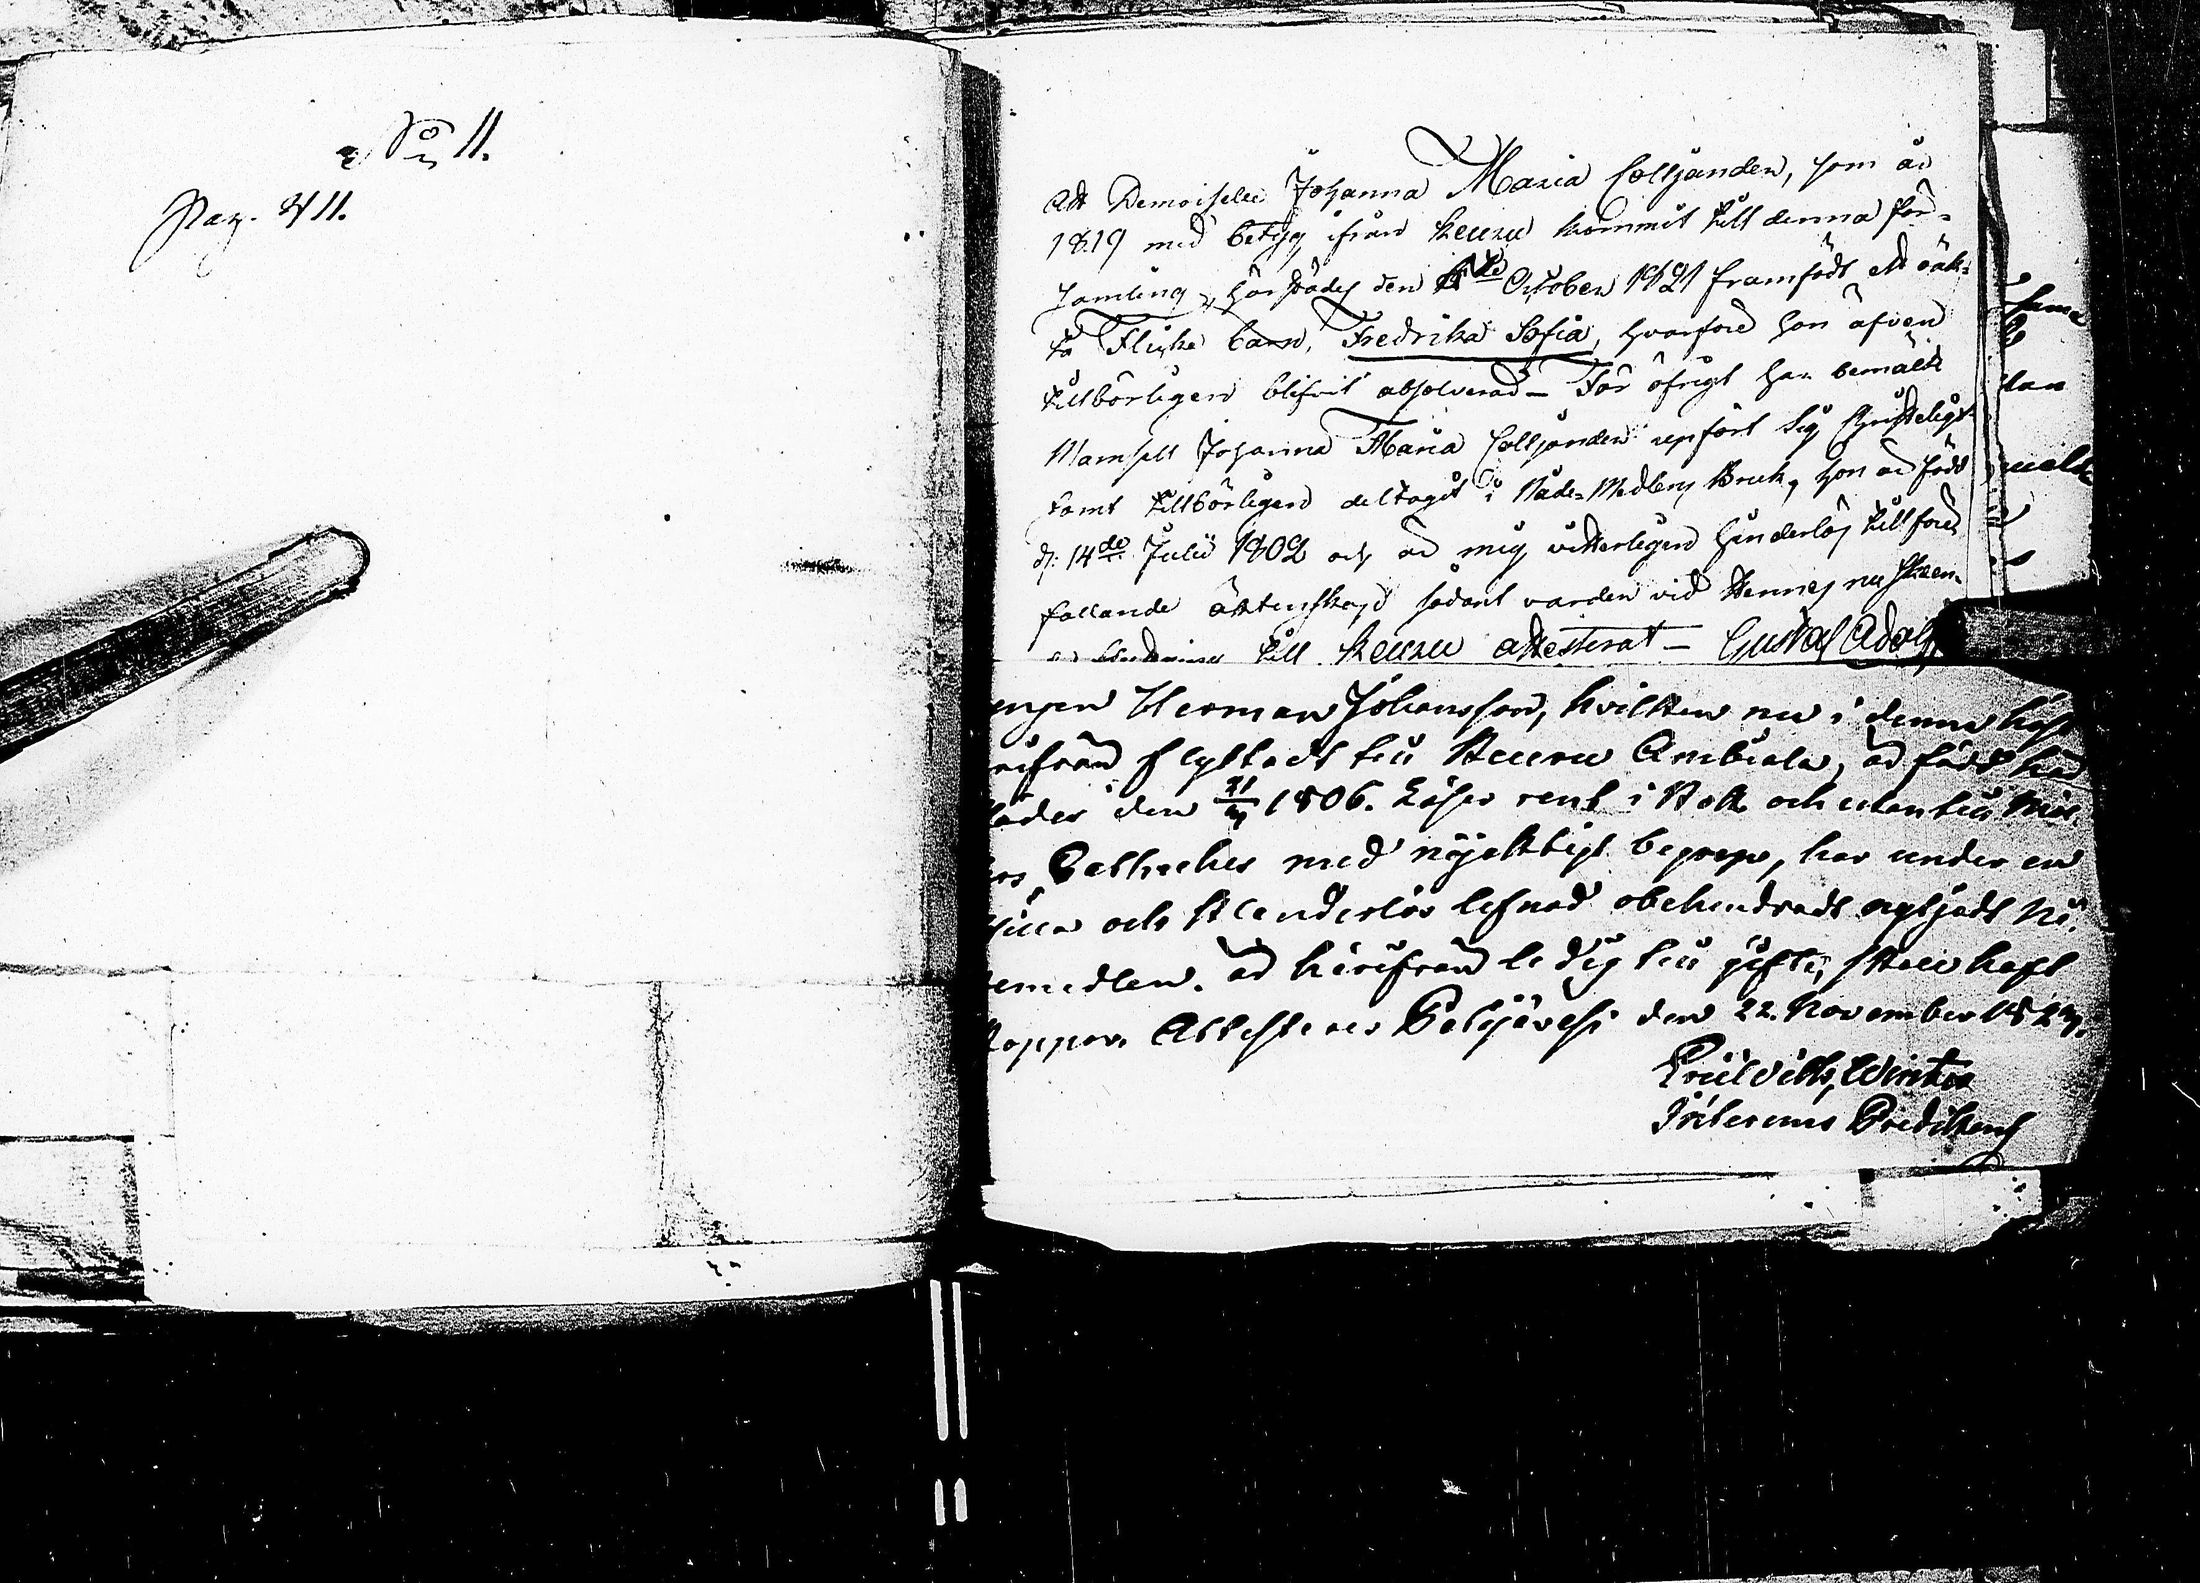 No 11.
Pag. 411.
Att Demoiselle Johanna Maria Colljanden, som år
1819 med betyg ifrån Keuru kommit till denna För-
samling, härstädes den October 1821 framfödt ett oäk-
ta Flicke barn, Fredrika Sofia, hvarföre hon äfven
tillbörligen blifvit absolverad – För öfrigt har bemälte
Mamsell Johanna Maria Colljanden uppfört sig Christeligt
samt tillbörligen deltagit i Nåde-Medlens Bruk, hon är född
d. 14de Julii 1802 och är mig vitterligen hinderlös till före
fallande äktenskap, sådant varder vid Hennes nu
till Keuru attesterat – Gustaf Adolf
Herman Johansson, hvilken nu i denna höst
härifrån flyttadt till Keuru Ambiala, är född här
städes den 21/ 1806. Läser rent i Bok och utan till
med nöjaktigt begrepp, har under en
stilla och klanderlös lefnad obehindradt nyttjadt Nå-
demedlen. är härifrån ledig till gifte, skall haft
koppor. Attesteras Petäjävesi den 22. November 182
Winter
Predikant